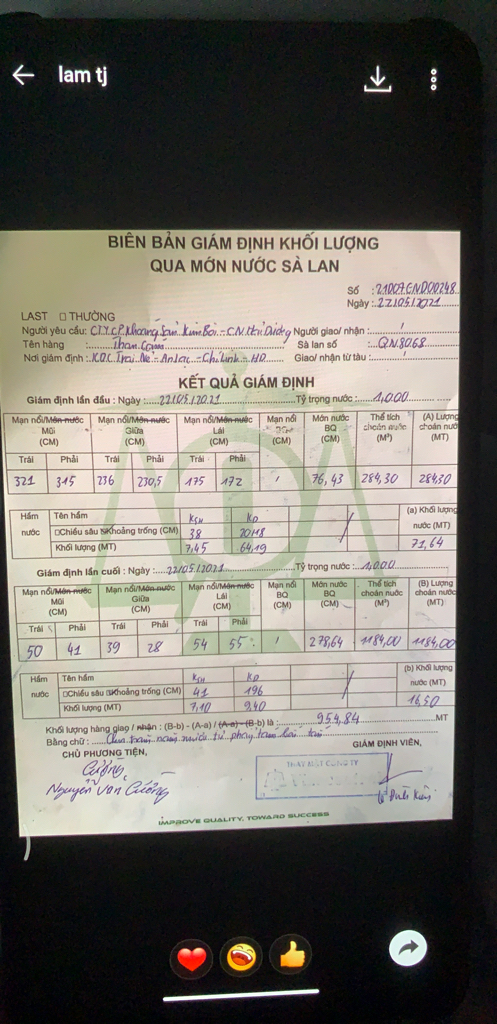 lam tj
BIÊN BẢN GIÁM ĐỊNH KHỐI LƯỢNG
QUA MÓN NƯỚC SÀ LAN
Số :21007.GND00248
Ngày :.22/05/2021
LAST □ THƯỜNG
Người yêu cầu: CTY.CP.Khoáng Sản Kim Bôi - C.N Hải Dương Người giao/ nhận : /
Tên hàng : Than Cám Sà lan số : QN8068
Nơi giám định : KDC Trại Mẻ - An Lạc - Chí Linh - HD Giao/ nhận từ tàu : /
KẾT QUẢ GIÁM ĐỊNH
Giám định lần đầu : Ngày : 22/05/2021 Tỷ trọng nước : 1,000
Mạn nổi/Món nước Mũi (CM) Mạn nổi/Món nước Giữa (CM) Mạn nổi/Món nước Lái (CM) Mạn nổi (CM) Món nước BQ (CM) Thể tích choán nước (M³) (A) Lượng choán nước (MT)
Trái Phải Trái Phải Trái Phải
321 315 236 230,5 175 172 / 76,43 284,30 284,30
Hầm nước Tên hầm KSH KD / (a) Khối lượng nước (MT)
□Chiều sâu Khoảng trống (CM) 38
Khối lượng (MT) 7,45 64,19 71,64
Giám định lần cuối : Ngày : 22/05/2021 Tỷ trọng nước : 1,000
Mạn nổi/Món nước Mũi (CM) Mạn nổi/Món nước Giữa (CM) Mạn nổi/Món nước Lái (CM) Mạn nổi BQ (CM) Món nước BQ (CM) Thể tích choán nước (M³) (B) Lượng choán nước (MT)
Trái Phải Trái Phải Trái Phải
50 41 39 28 54 55 / 278,64 1184,00 1184,00
Hầm nước Tên hầm KSH KD / (b) Khối lượng nước (MT)
□Chiều sâu Khoảng trống (CM) 41 196
Khối lượng (MT) 7,10 9,40 16,50
Khối lượng hàng giao / nhận : (B-b) - (A-a) / (A-a) - (B-b) là : 954,84 MT
Bằng chữ : Chín trăm năm mươi tư phẩy tám bốn tấn
CHỦ PHƯƠNG TIỆN, GIÁM ĐỊNH VIÊN,
Cường
THAY MẶT CÔNG TY
Nguyễn Văn Cường
IMPROVE QUALITY, TOWARD SUCCESS